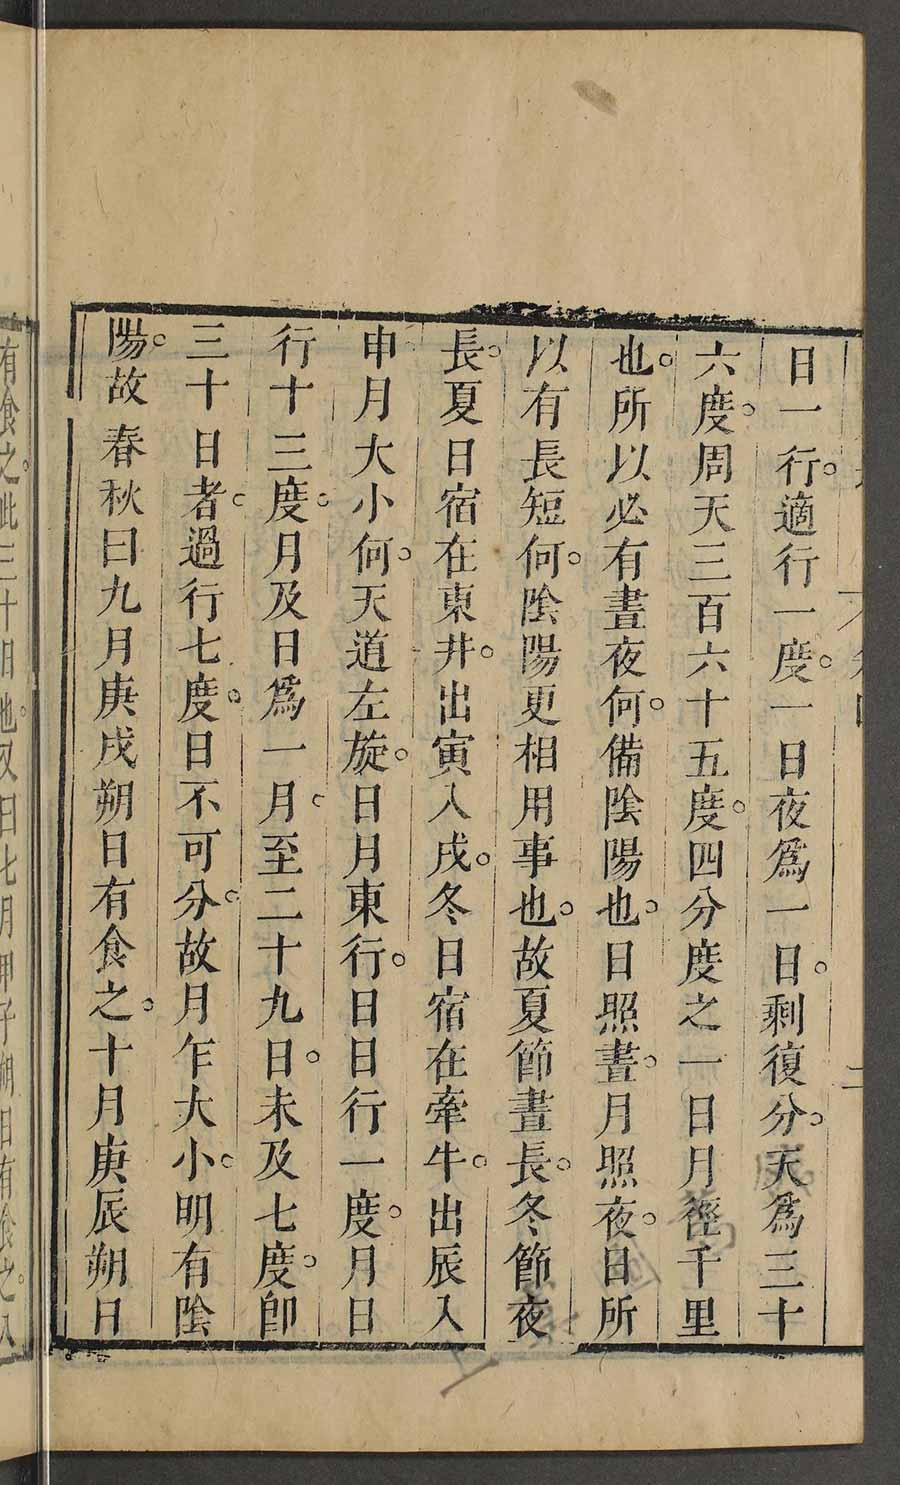 日一行。適行一度。一日夜爲一日。剩復分。天爲三十
六度。周天三百六十五度。四分度之一日月徑千里
也。所以必有晝夜何。備陰陽也。日照晝。月照夜。日所
以有長短何。陰陽更相用事也。故夏節晝長。冬節夜
長。夏日宿在東井。出寅入戌。冬日宿在牽牛。出辰入
申月大小何。天道左旋。日月東行。日日行一度。月日
行十三度。月及日爲一月。至二十九日。未及七度。卽
三十日者。過行七度。日不可分。故月乍大小。明有陰
陽。故春秋曰九月庚戌朔日有食之。十月庚辰朔日
有食之。此三十月也。又日七月甲子朔日有食之。八